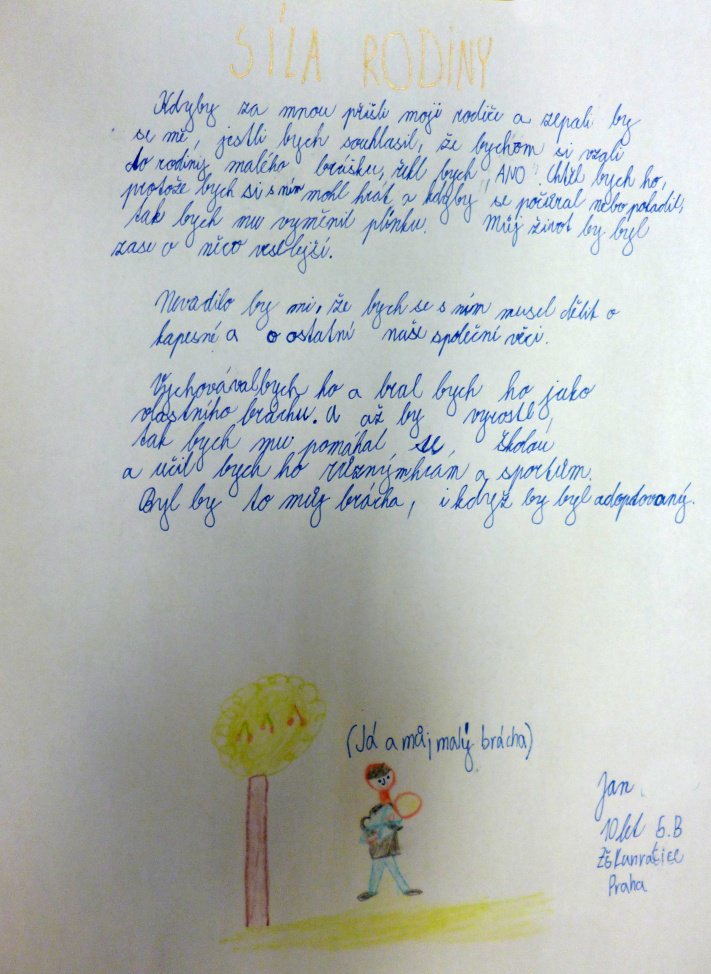 SÍLA RODINY
Kdyby za mnou přišli moji rodiče a zepali by
se mě, jestli bych souhlasil, že bychom si vzali
do rodiny malého brášku, řekl bych „ANO". Chtěl bych ho,
protože bych si s ním mohl hrát a kdyby se počůral nebo pokadil,
tak bych mu vyměnil plínku. Můj život by byl
zase o něco veselejší.
Nevadilo by mi, že bych se s ním musel dělit o
tapesné a o ostatní naše společní věci.
Vychovávalbych ho a bral bych ho jako
vlastního bráchu. A až by vyrostl,
tak bych mu pomáhal se školou
a učil bych ho různýmhrám a sportům.
Byl by to můj brácha, i když by byl adoptovaný.
(Já a můj malý brácha)
Jan
10 let 5.B
ZŠ Kunratice
Praha